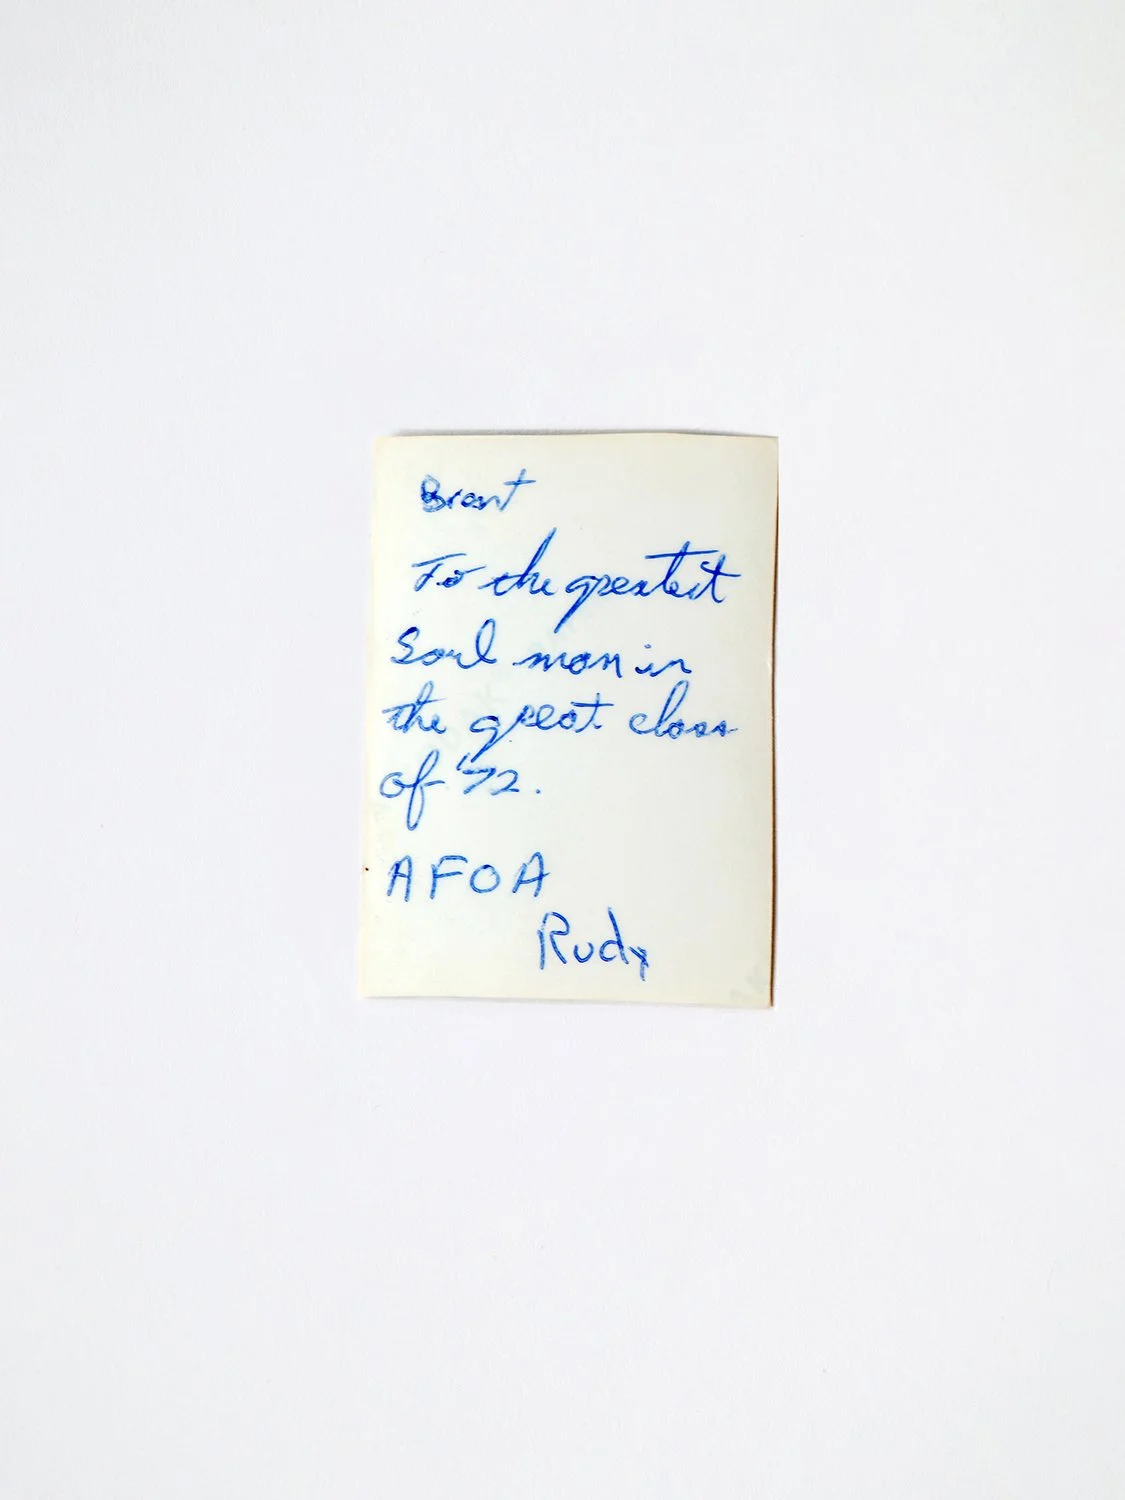 Brant
To the greatest
Soul man in
the great class
of '72.
AFOA
Rudy